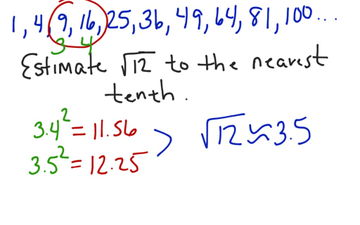 1, 4, 9, 16, 25, 36, 49, 64, 81, 100...
3 4
Estimate √12 to the nearest
tenth.
3.4² = 11.56
3.5² = 12.25
> √12 ≈ 3.5